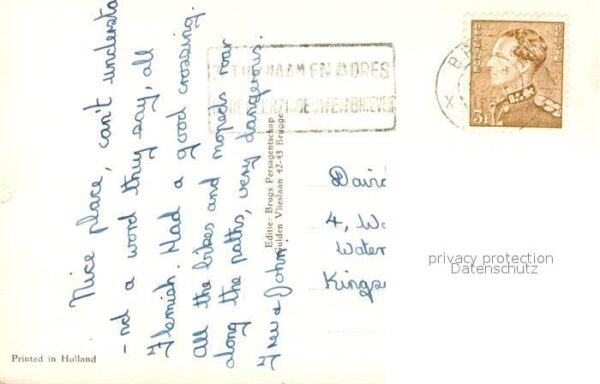 Nice place, can't understa
-nd a word they say, all
Flemish. Had a good crossing.
All the bikes and mopeds roar
along the paths, very dangerous.
& John
Editie: Brugs Persagentschap
Gulden Vlieslaan 42-43 Brugge
Printed in Holland
NAAM EN ADRES
BRIEVEN
BELGIQUE BELGIE
3F
B
X
David
4, Wa
Water
Kings
privacy protection
Datenschutz